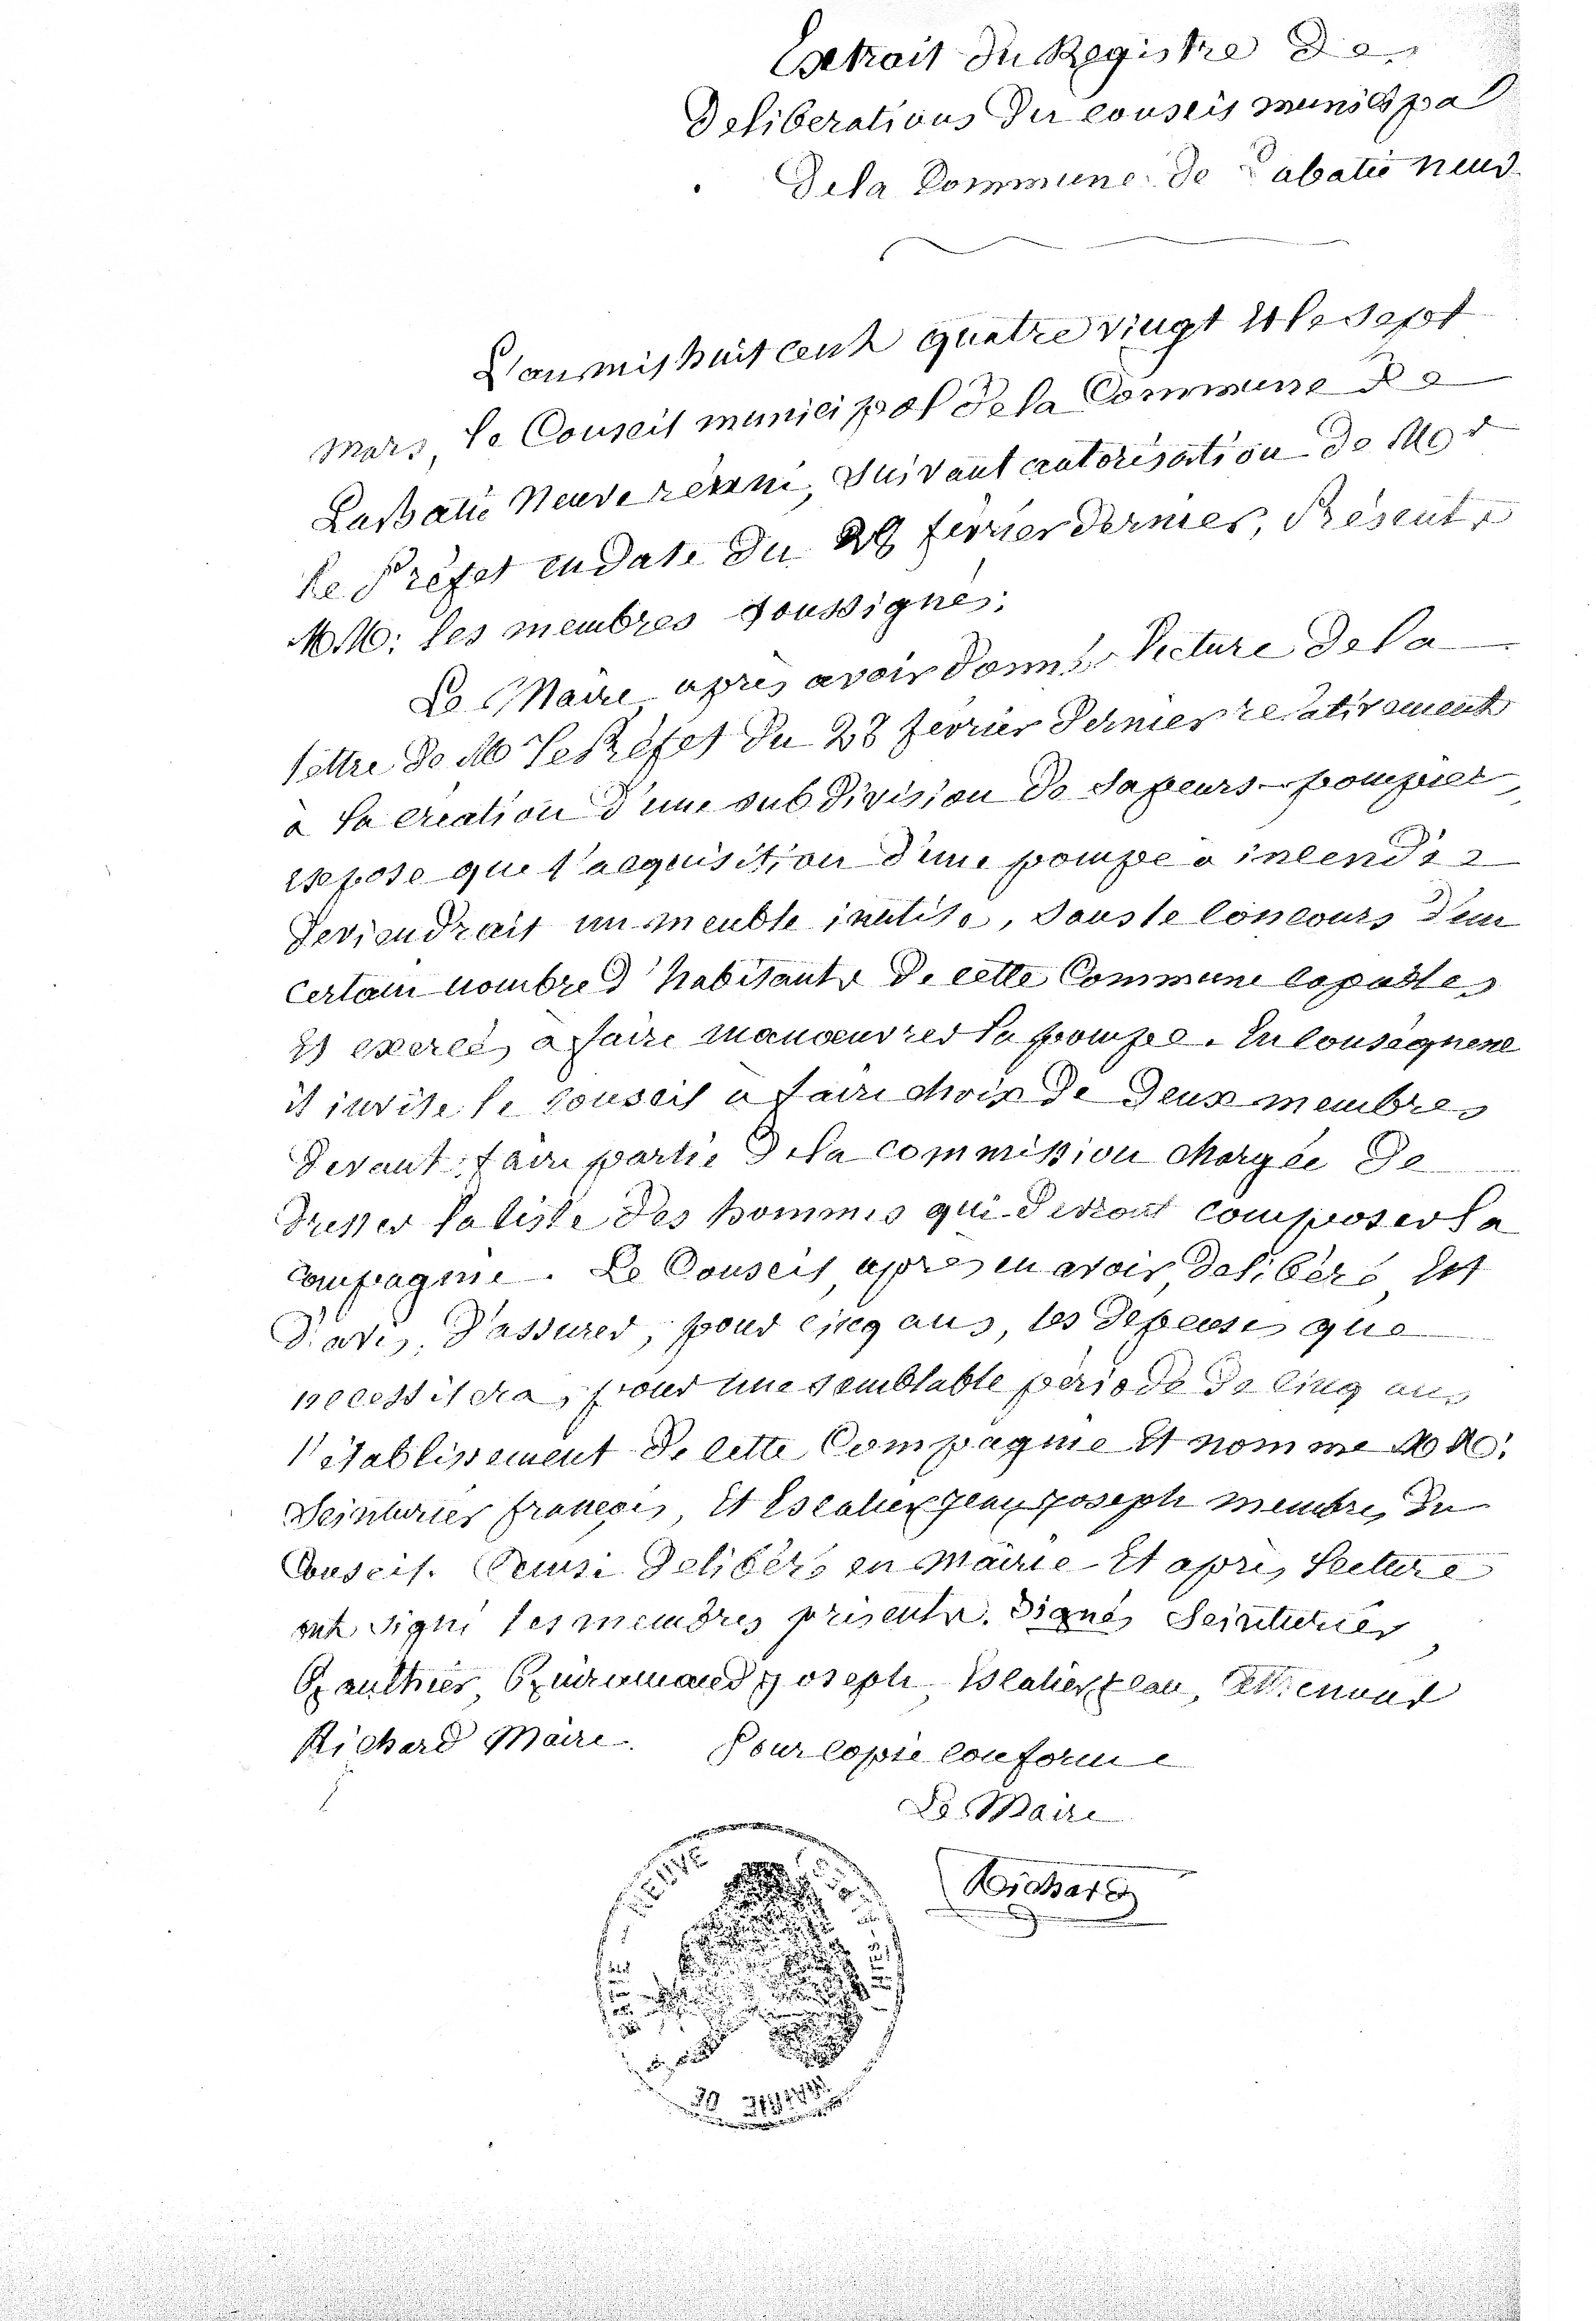 Extrait du Registre des
deliberations du conseil municipal
de la Commune de Labatie neuve
L'an mil huit cent quatre vingt et le sept
mars, le Conseil municipal de la Commune de
Labatie Neuve réuni, suivant autorisation de Mr
le Préfet en date du 28 février dernier, Présents
MM: les membres soussignés;
Le Maire après avoir donné lecture de la
lettre de M le Préfet du 28 fevrier dernier relativement
à la création d'une subdivision de sapeurs-pompier,
expose que l'acquisition d'une pompe à incendie
deviendrait un meuble inutile, sans le concours d'un
certain nombre d'habitants de cette Commune capables
et exercés à faire manœuvrer la pompe. En conséquence
il invite le conseil à faire choix de deux membres
devant faire partie de la commission chargée de
dresser la liste des hommes qui devront composer la
compagnie. Le Conseil, après en avoir délibéré, Est
d'avis, d'assurer, pour cinq ans, les depenses que
necessitera, pour une semblable période de cinq ans
l'établissement de cette Compagnie Et nomme MM:
Seinturier françois, Et Escalier Jean Joseph membres du
Conseil. Ainsi délibéré en Mairie Et après lecture
ont signé les membres présents. Signés Seinturier,
Gaulthier, Guiramand Joseph, Escalier Jean,
Richard Maire. Pour copie conforme
Le Maire
Richard
NEUVE
MAIRIE DE